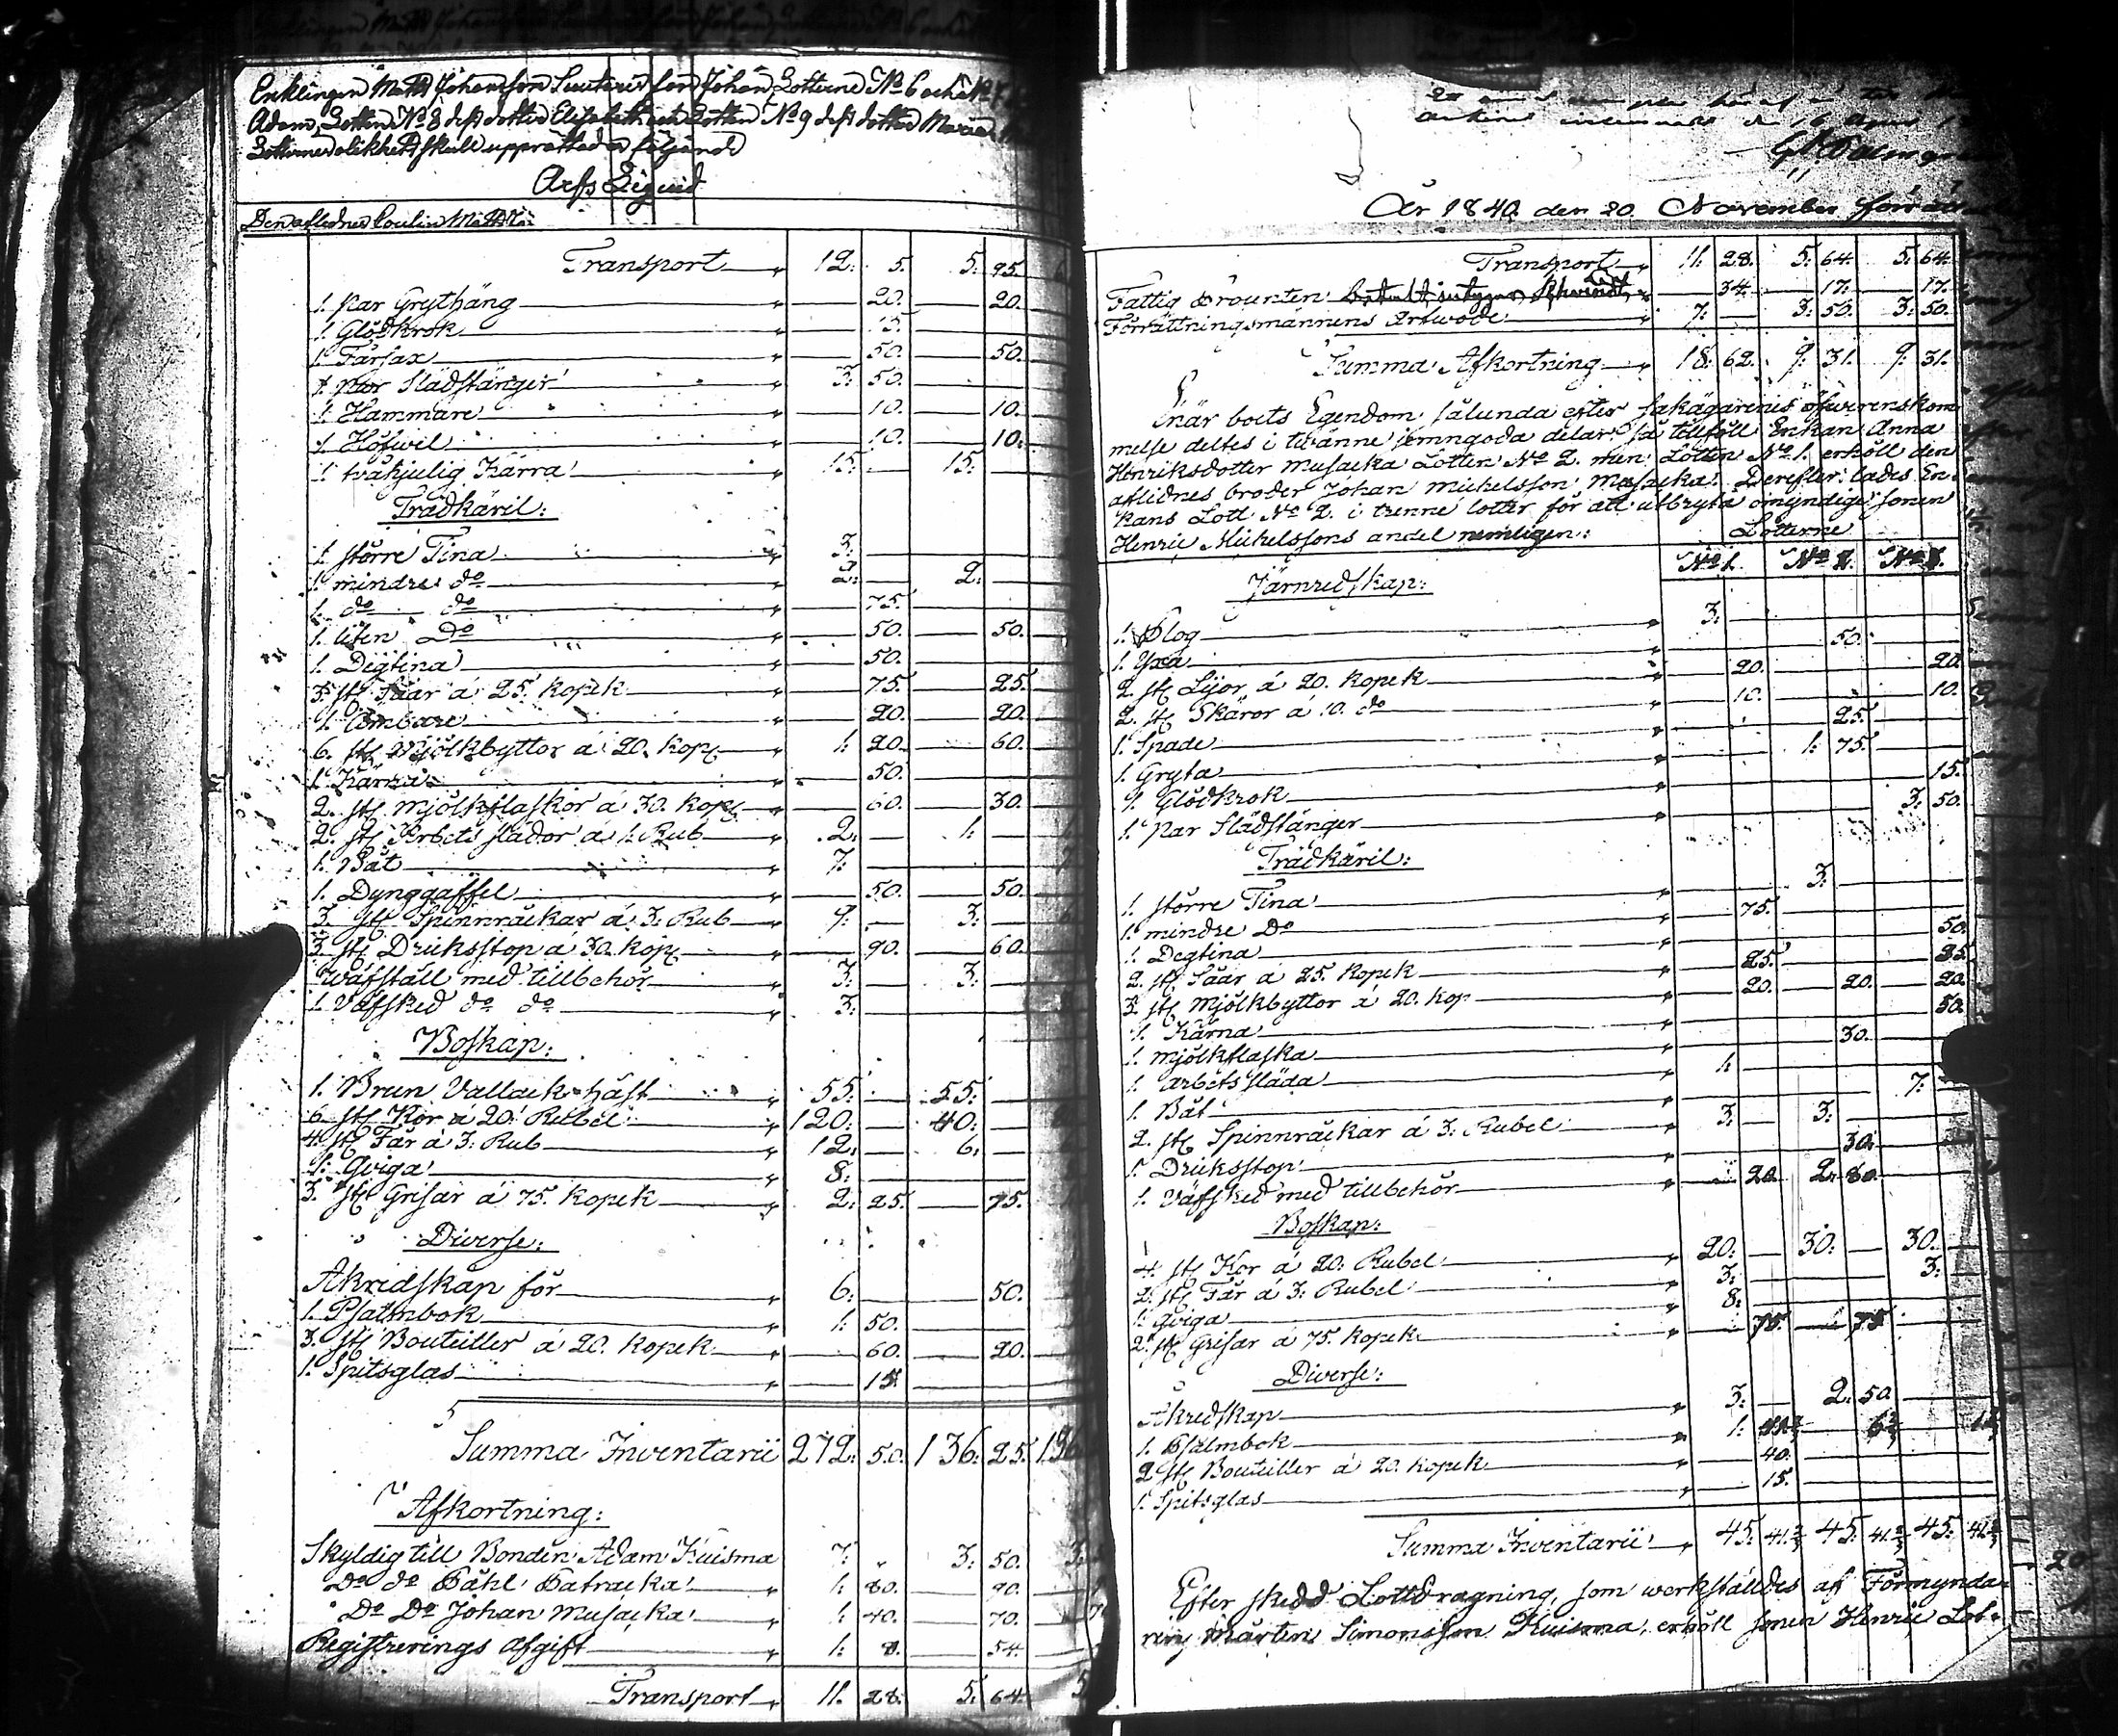 Enklingen Matts Johansson son Johan Lotterne No 6 och No 7
Adam, Lotten No 8 dess dotter Elisabeth och Lotten No 9 dess dotter Maria
Lotternes olikhet skull upprättades följande
Arfs Liqvid
Den aflednes Cousin Matts
Transport 12. 5. 5. 95.
1. par Grythäng 20. 20.
1. Glödkrok 15.
1. Färsax 50. 50.
1. par Slädstänger 3. 50.
1. Hammare 10. 10.
1. Höfwel 10. 10.
1. tvåhjulig Kärra 15. 15.
Trädkäril:
1. större Tina 3.
1. mindre do 2. 2.
1. do do 75.
1. liten Do 50. 50.
1. Digtina 50.
3. st. Såar á 25. Kopek 75. 25.
1. Ämbare 20. 20.
6. st. Mjölkbyttor á 20. Kop. 1. 20. 60.
1. Kärna 50.
2. st. Mjölkflaskor á 30. Kop. 60. 30.
2. st. Arbets slädor á 1. Rub 2. 1.
1. Båt 7.
1. Dynggaffel 50. 50.
3. st. Spinnråckar á 3. Rub 9. 3.
3. st. Dricksstop a 30. Kop. 90. 60.
Wäfställ med tillbehör 3. 3.
1. Väfsked do do 3.
Boskap:
1. Brun Vallack häst 55. 55.
6. st. Kor á 20. Rubel 120. 40.
4. st. Får á 3. Rub 12. 6.
1. Qviga 8.
3. st. Grisar á 75. Kopek 2. 25. 75.
Diverse:
Åkredskap för 6. 50.
1. Psalmbok 1. 50.
3. st. Bouteiller á 20. Kopek 60. 20.
1. Spitsglas 15.
Summa Inventarii 272. 50. 136. 25. 136
Afkortning:
Skyldig till Bonden Adam Kuisma 7. 3. 50. 3.
Do do Påhl Patracka 1. 80. 90.
Do Do Johan Musacka 1. 40. 70.
Registrerings afgift 1. 8. 54.
Transport 11. 28. 5. 64. 5
den 16 April
År 1840. den 20. November
Transport 11. 28. 5. 64. 5. 64.
Fattig Procenten 34. 17. 17.
Förrättningsmännens Arfwode 7. 3. 50. 3. 50.
Summa Afkortning 18. 62. 9. 31. 9. 31.
Enär boets Egendom sålunda efter sakägarenes öfwerenskom
melse deltes i twänne jemngoda delar så tillföll Enkan Anna
Henriksdotter Musacka Lotten No 2. men Lotten No 1. erhöll den
aflidnes broder Johan Michelsson Musacka. Derefter lades En-
kans Lott No 2. i trenne lotter för att utbryta omyndige sonen
Henric Michelssons andel nemligen:
Lotterne
Järnredskap: No 1. No
1. Plog 3.
1. Yxa 50.
2. st. Lijor á 20. Kopek 20. 20.
2. st. Skäror á 10. do 10. 10.
1. Spade 25.
1. Gryta 1. 75.
1. Glödkrok 15.
1. par Slädstänger 3. 50.
Trädkäril:
1. större Tina 3.
1. mindre Do 75.
1. Degtina 50.
2. st. Såar á 25. Kopek 25. 25.
3. st. Mjölkbyttor á 20. Kop 20. 20. 20.
1. Kärna 50.
1. Mjölkflaska 30.
1. arbets släda 1.
1. Båt 7.
2. st. Spinnråckar á 3. Rubel 3. 3.
1. Dricksstop 30.
1. Väfsked med tillbehör 20. 2. 80.
Boskap:
4. st. Kor á 20. Rubel 20. 30. 30.
2. st. Får á 3. Rubel 3. 3.
1. Qviga 8.
2. st. Grisar á 75. Kopek 75. 75.
Diverse:
Åkredskap 3. 2. 50.
1. Psalmbok 1.
2 st. Bouteiller á 20. Kopek 40.
1. Spitsglas 15.
Summa Inventarii 45. 41 2/3 45. 41 2/3 45. 41 2/3
Efter skedd Lottdragning, som werkställdes af Förmynda-
ren Mårten Simonsson Kuisma, erhöll sonen Henric Lot-